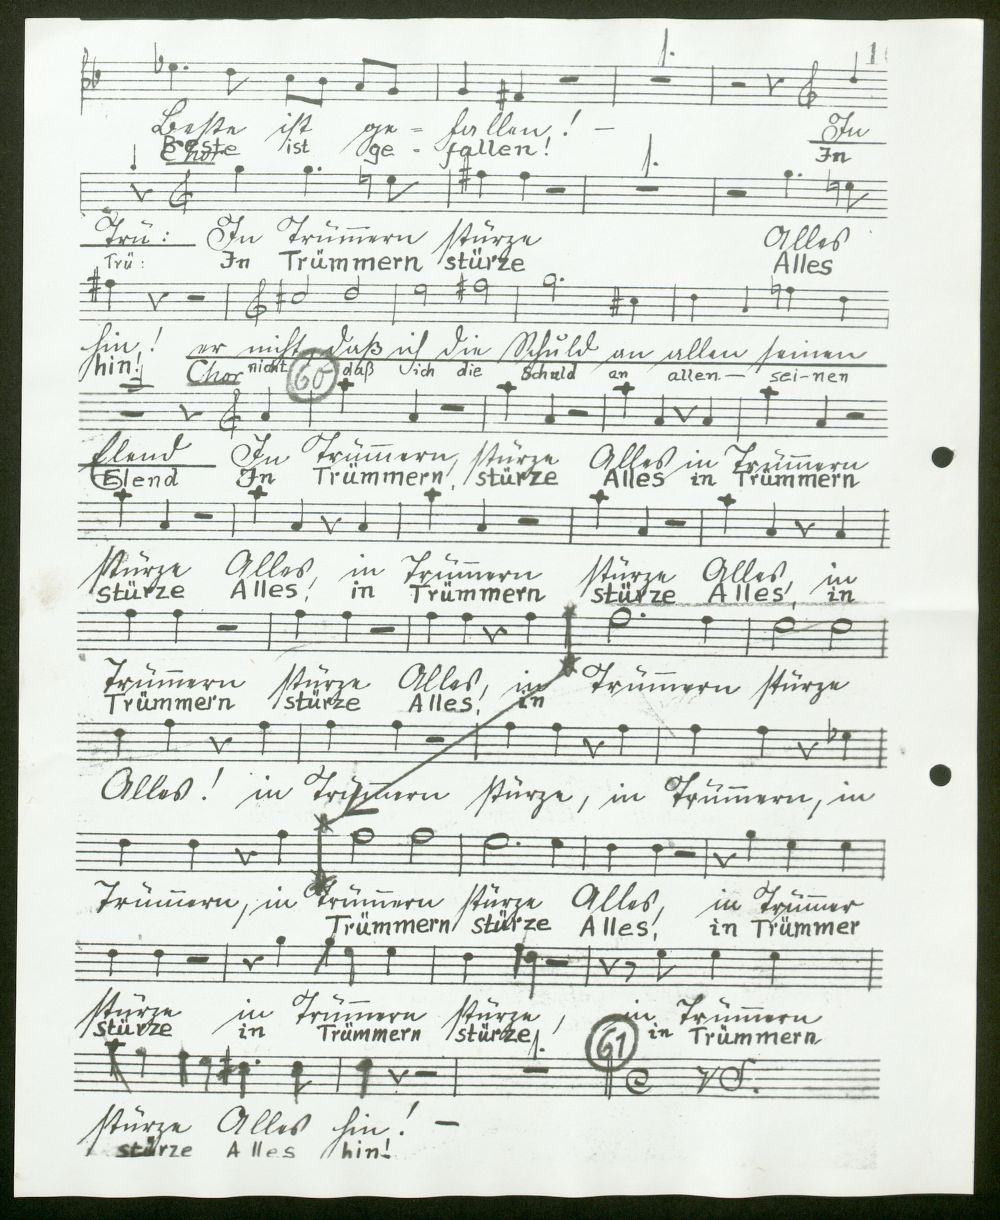 1.
Beste ist ge - fallen! – In
Beste ist ge - fallen! In
Chor
1.
Trü: In Trümmern stürze Alles
Trü: In Trümmern stürze Alles
hin! er nicht, daß ich die Schuld an allen seinen
hin! Chor nicht daß ich die Schuld an allen — sei-nen
60
Elend In Trümmern, stürze Alles in Trümmern
Elend In Trümmern, stürze Alles in Trümmern
stürze Alles, in Trümmern stürze Alles, in
stürze Alles, in Trümmern stürze Alles, in
Trümmern stürze Alles, in Trümmern stürze
Trümmern stürze Alles, in
Alles! in Trümmern stürze, in Trümmern, in
Trümmern, in Trümmern stürze Alles, in Trümmer
Trümmern stürze Alles, in Trümmer
stürze in Trümmern stürze, in Trümmern
stürze in Trümmern stürze, in Trümmern
1.
61
stürze Alles hin! –
stürze Alles hin!